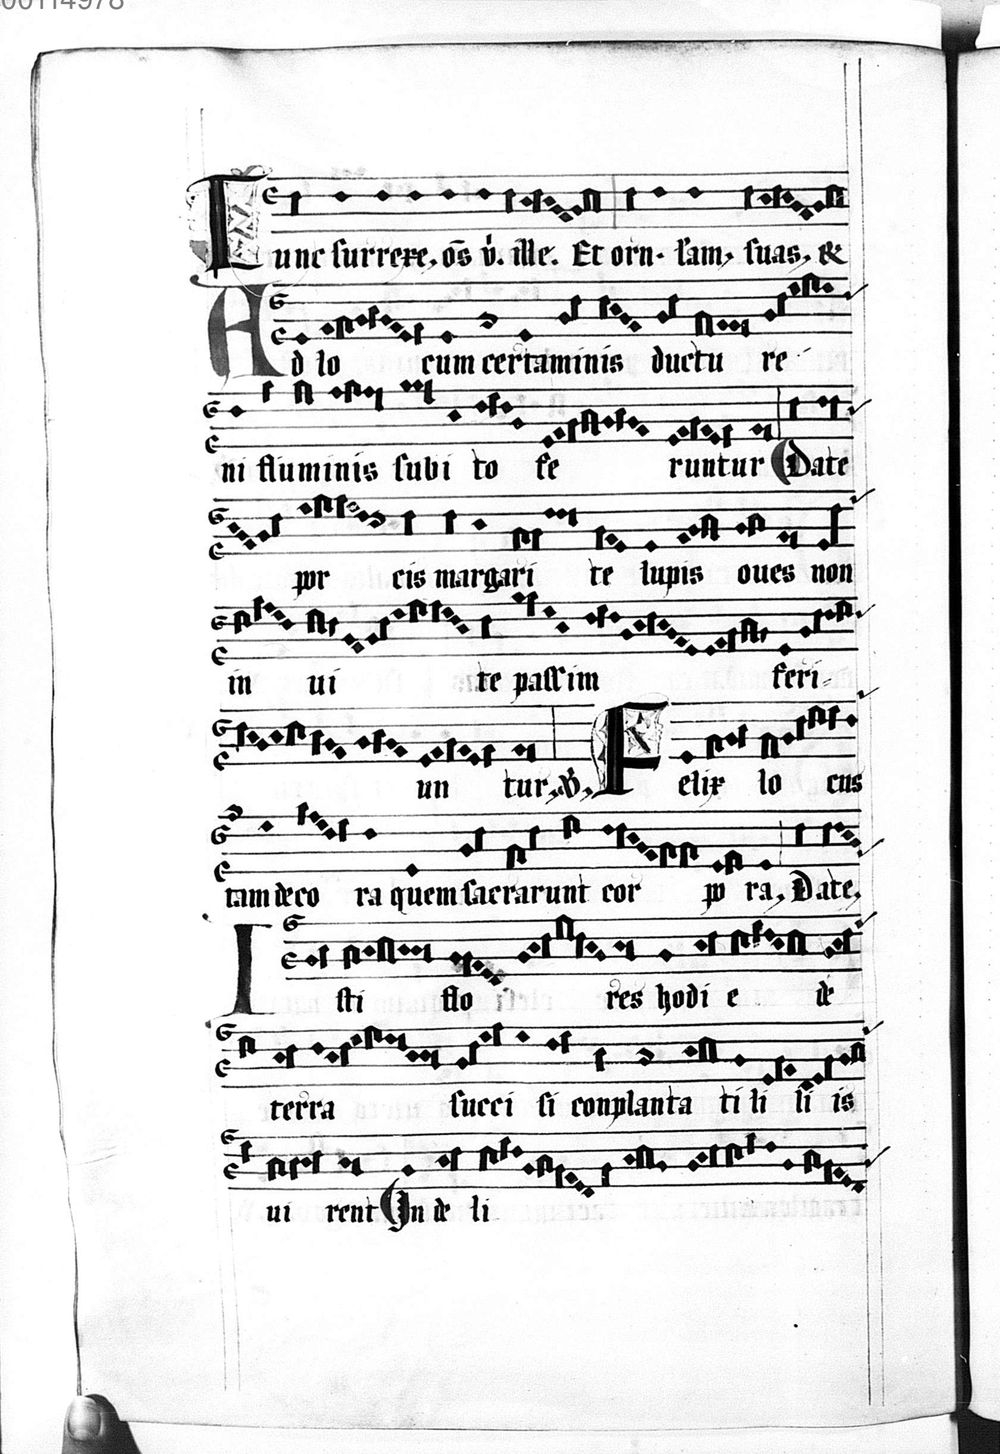 00114978
Tunc surrexe, oēs v. ille. Et orn. lam, suas, &
Ad lo cum certaminis ductu re
ni fluminis subi to fe runtur Date
pr cis margari te lupis oues non
in ui te passim feri-
un tur, v, Felix lo cus
tam deco ra quem sacrarunt cor po ra, Date,
Isti flo res hodi e de
terra succi si conplanta ti li li is
ui rent In de li